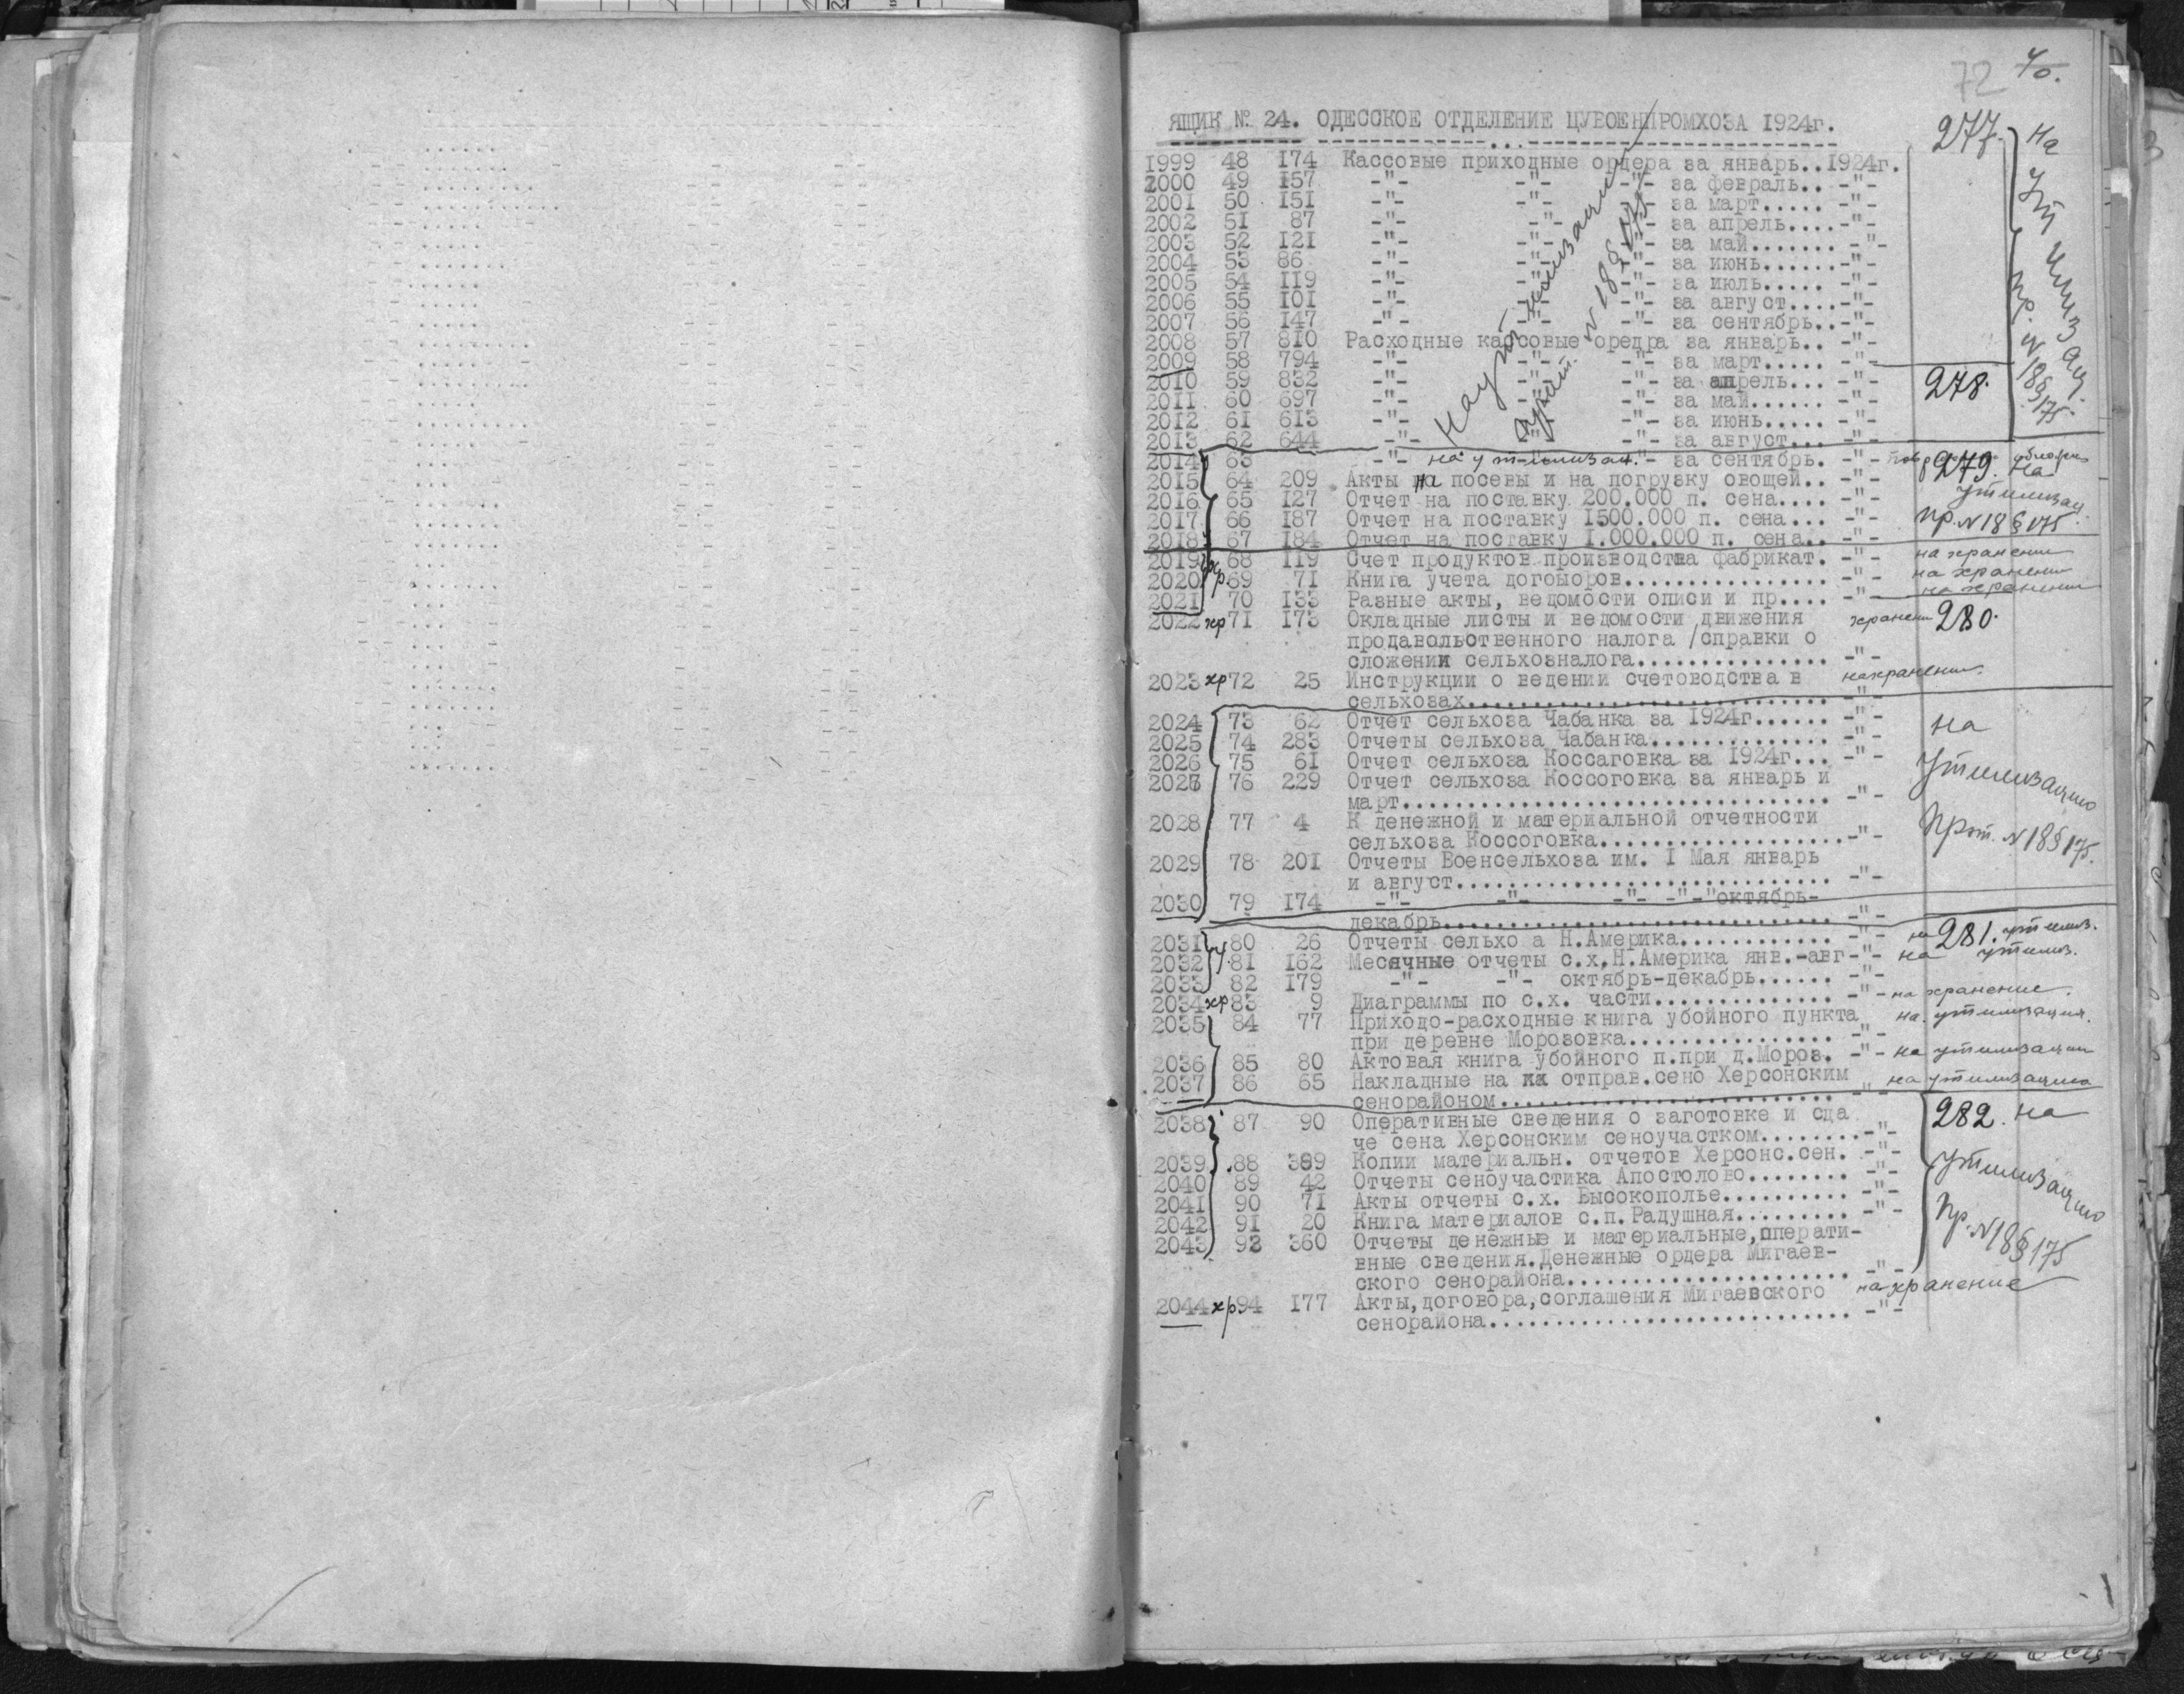 72 40.
ЯЩИК № 24. ОДЕССКОЕ ОТДЕЛЕНИЕ ЦУВОЕНПРОМХОЗА 1924г.
277. На утилизац. пр. N 18 § 175.
1999 48 174 Кассовые приходные ордера за январь..1924г.
2000 49 157 -"- -"- -"- за февраль.. -"-
2001 50 151 -"- -"- -"- за март..... -"-
2002 51 87 -"- -"- -"- за апрель....-"-
2003 52 121 -"- -"- -"- за май....... -"-
2004 53 86 -"- -"- -"- за июнь......-"-
2005 54 119 -"- -"- -"- за июль..... -"-
2006 55 101 -"- -"- -"- за август....-"-
2007 56 147 -"- -"- -"- за сентябрь..-"-
2008 57 810 Расходные кассовые оредра за январь.. -"-
2009 58 794 -"- -"- -"- за март..... -"-
2010 59 832 -"- -"- -"- за апрель... -"- 278.
2011 60 697 -"- -"- -"- за май...... -"-
2012 61 613 -"- -"- -"- за июнь..... -"-
2013 62 644 -"- -"- -"- за август... -"-
На утилизацию
N 18 § 175
2014 63 -"- на утилизац. -"- за сентябрь. -"-
2015 64 209 Акты на посевы и на погрузку овощей.. -"- 279. На
2016 65 127 Отчет на поставку 200.000 п. сена.... -"- утилизац.
2017 66 187 Отчет на поставку 1500.000 п. сена... -"- пр. N 18 § 175.
2018 67 184 Отчет на поставку 1.000.000 п. сена.. -"-
2019 68 119 Счет продуктов производства фабрикат. -"- на хранение
2020 хр. 69 71 Книга учета догоыоров................ -"- на хранение
2021 70 133 Разные акты, ведомости описи и пр.... -"- на хранение
2022 хр 71 173 Окладные листы и ведомости движения хранение 280.
продавольственного налога /справки о
сложении сельхозналога............... -"-
2023 хр 72 25 Инструкции о ведении счетоводства в на хранение.
сельхозах............................ -"-
2024 73 62 Отчет сельхоза Чабанка за 1924г...... -"- на
2025 74 283 Отчеты сельхоза Чабанка.............. -"-
2026 75 61 Отчет сельхоза Коссаговка за 1924г... -"- утилизацию
2027 76 229 Отчет сельхоза Коссоговка за январь и
март................................. -"-
2028 77 4 К денежной и материальной отчетности Прот. N 18 § 175.
сельхоза Коссоговка...................-"-
2029 78 201 Отчеты Военсельхоза им. 1 Мая январь
и август............................. -"-
2030 79 174 -"- -"- -"- -"-"октябрь-
декабрь.............................. -"-
2031 80 26 Отчеты сельхо а Н.Америка............ -"- на 281. утилиз.
2032 у. 81 162 Месячные отчеты с.х.Н.Америка янв.-авг-"- на утилиз.
2033 82 179 -"- -"- октябрь-декабрь...... -"-
2034 хр 83 9 Диаграммы по с.х. части.............. -"- на хранение.
2035 84 77 Приходо-расходные книга убойного пункта на утилизация.
при деревне Морозовка................ -"-
2036 85 80 Актовая книга убойного п.при д.Мороз. -"- на утилизации
2037 86 65 Накладные на отправ.сено Херсонским на утилизацию
сенорайоном.......................... -"-
2038 87 90 Оперативные сведения о заготовке и сда 282. на
че сена Херсонским сеноучастком........-"-
2039 88 369 Копии материальн. отчетов Херсонс.сен. -"- утилизацию
2040 89 42 Отчеты сеноучастика Апостолово........ -"-
2041 90 71 Акты отчеты с.х. Высокополье.......... -"-
2042 91 20 Книга материалов с.п.Радушная......... -"- Пр. N 18 § 175
2043 92 360 Отчеты денежные и материальные,операти-
вные сведения.Денежные ордера Мигаев-
ского сенорайона...................... -"-
2044 хр 94 177 Акты,договора,соглашения Мигаевского на хранение
сенорайона............................ -"-